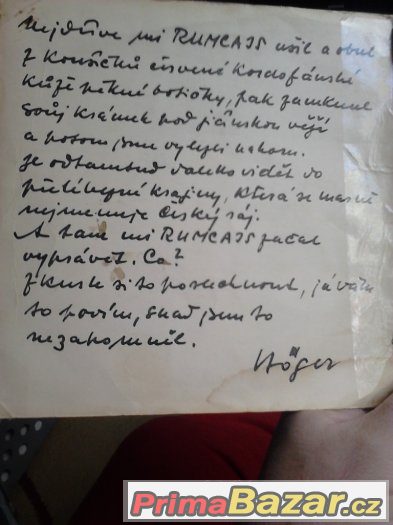 Nejdříve mi RUMCAJS ušil a obul
z kousíčků červené kordofánské
kůže pěkné botičky, pak zamknul
svůj krámek pod jičínskou věží
a potom jsme vylezli nahoru.
Je odtamtud daleko vidět do
přelíbezné krajiny, která se marně
nejmenuje Český ráj.
A tam mi RUMCAJS začal
vyprávět. Co?
Zkuste si to poslechnout, já vám
to povím, snad jsem to
nezapomněl.
Höger
PrimaBazar.cz